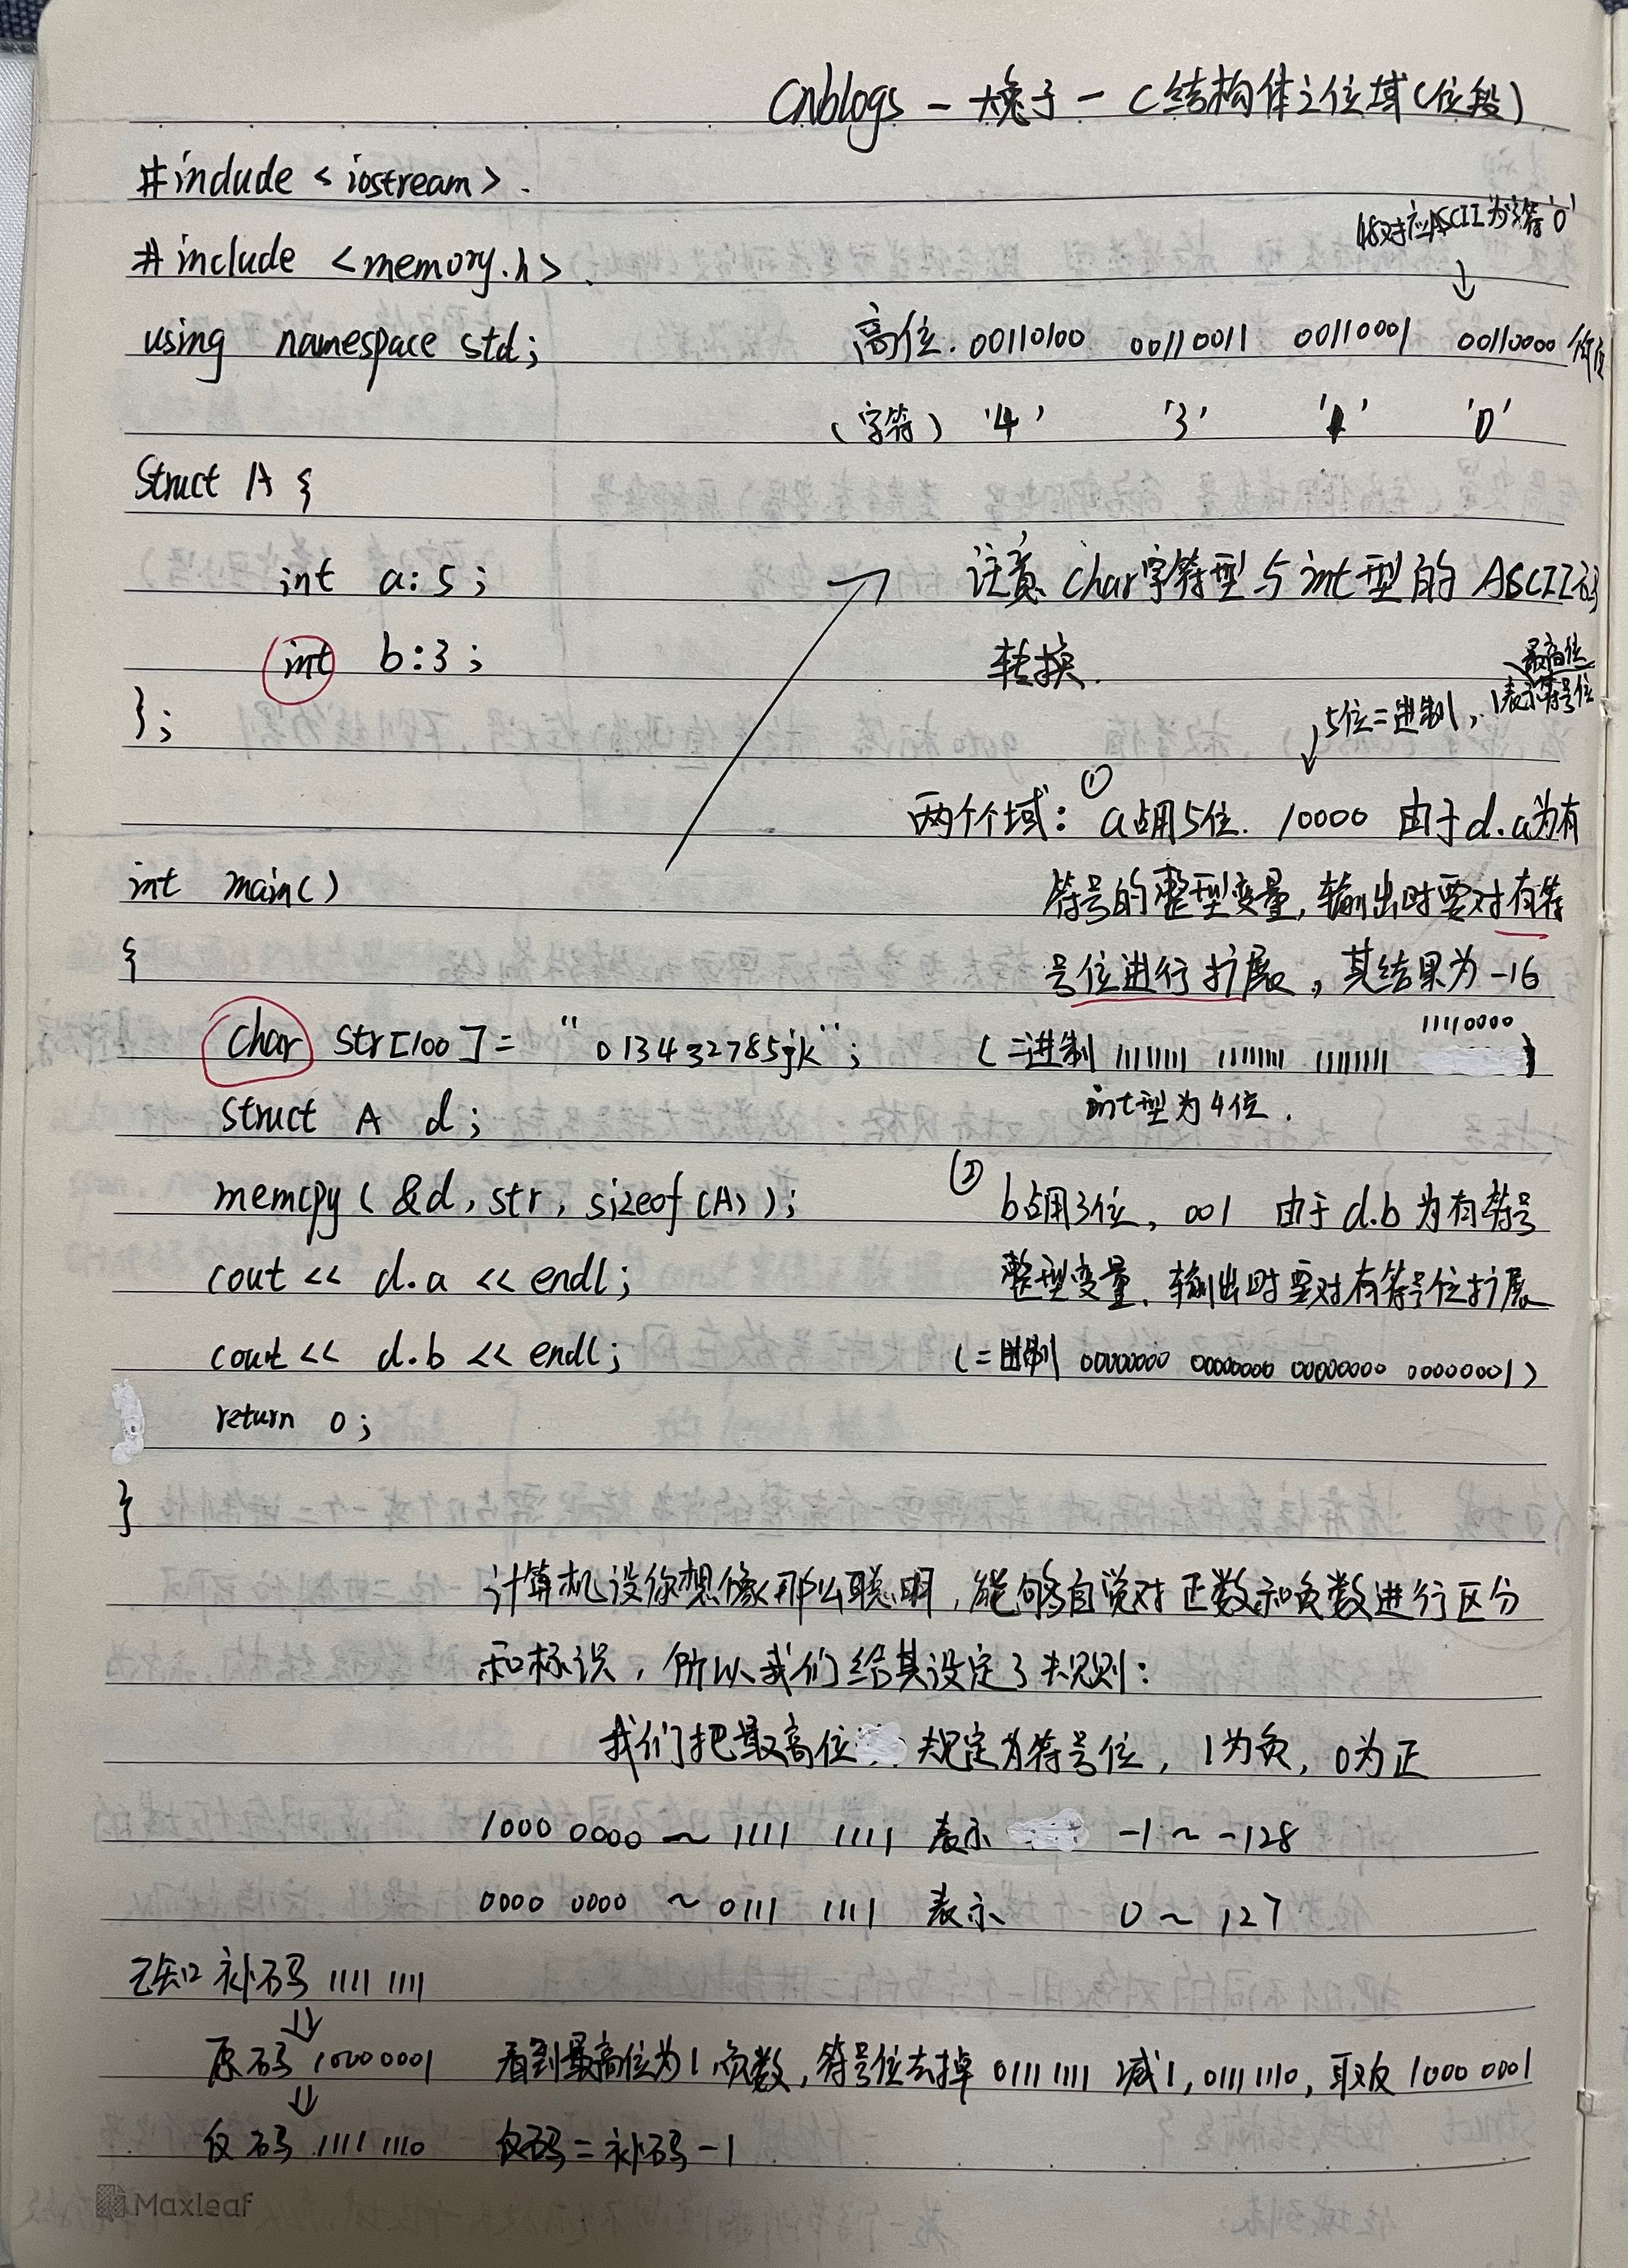 Cnblogs - 大兔子 - C结构体之位域(位段)
#include <iostream>.
#include <memory.h>.
48对应ASCII为字符'0'
↓
using namespace std;
高位. 00110100 00110011 00110001 00110000 低位
(字符) '4' '3' '1' '0'
Struct A {
int a:5;
int b:3;
};
注意 char字符型与int型的ASCII码
转换.
5位二进制, 最高位
1表示符号位
↓
两个域: ① a占用5位. 10000 由于d.a为有
符号的整型变量, 输出时要对有符
号位进行扩展, 其结果为-16
(二进制 11111111 11111111 11111111 11110000)
int型为4位.
② b占用3位, 001 由于d.b为有符号
整型变量, 输出时要对有符号位扩展
(二进制 00000000 00000000 00000000 00000001)
int main()
{
char str[100] = "013432785jk";
struct A d;
memcpy(&d, str, sizeof(A));
cout << d.a << endl;
cout << d.b << endl;
return 0;
}
计算机没你想像那么聪明, 能够自觉对正数和负数进行区分
和标识, 所以我们给其设定了规则:
我们把最高位 规定为符号位, 1为负, 0为正
1000 0000 ~ 1111 1111 表示 -1 ~ -128
0000 0000 ~ 0111 1111 表示 0 ~ 127
已知补码 1111 1111
⇓
原码 10000001 看到最高位为1,负数, 符号位去掉 0111 1111 减1, 0111 1110, 取反 1000 0001
⇓
反码 1111 1110 反码=补码-1
Maxleaf